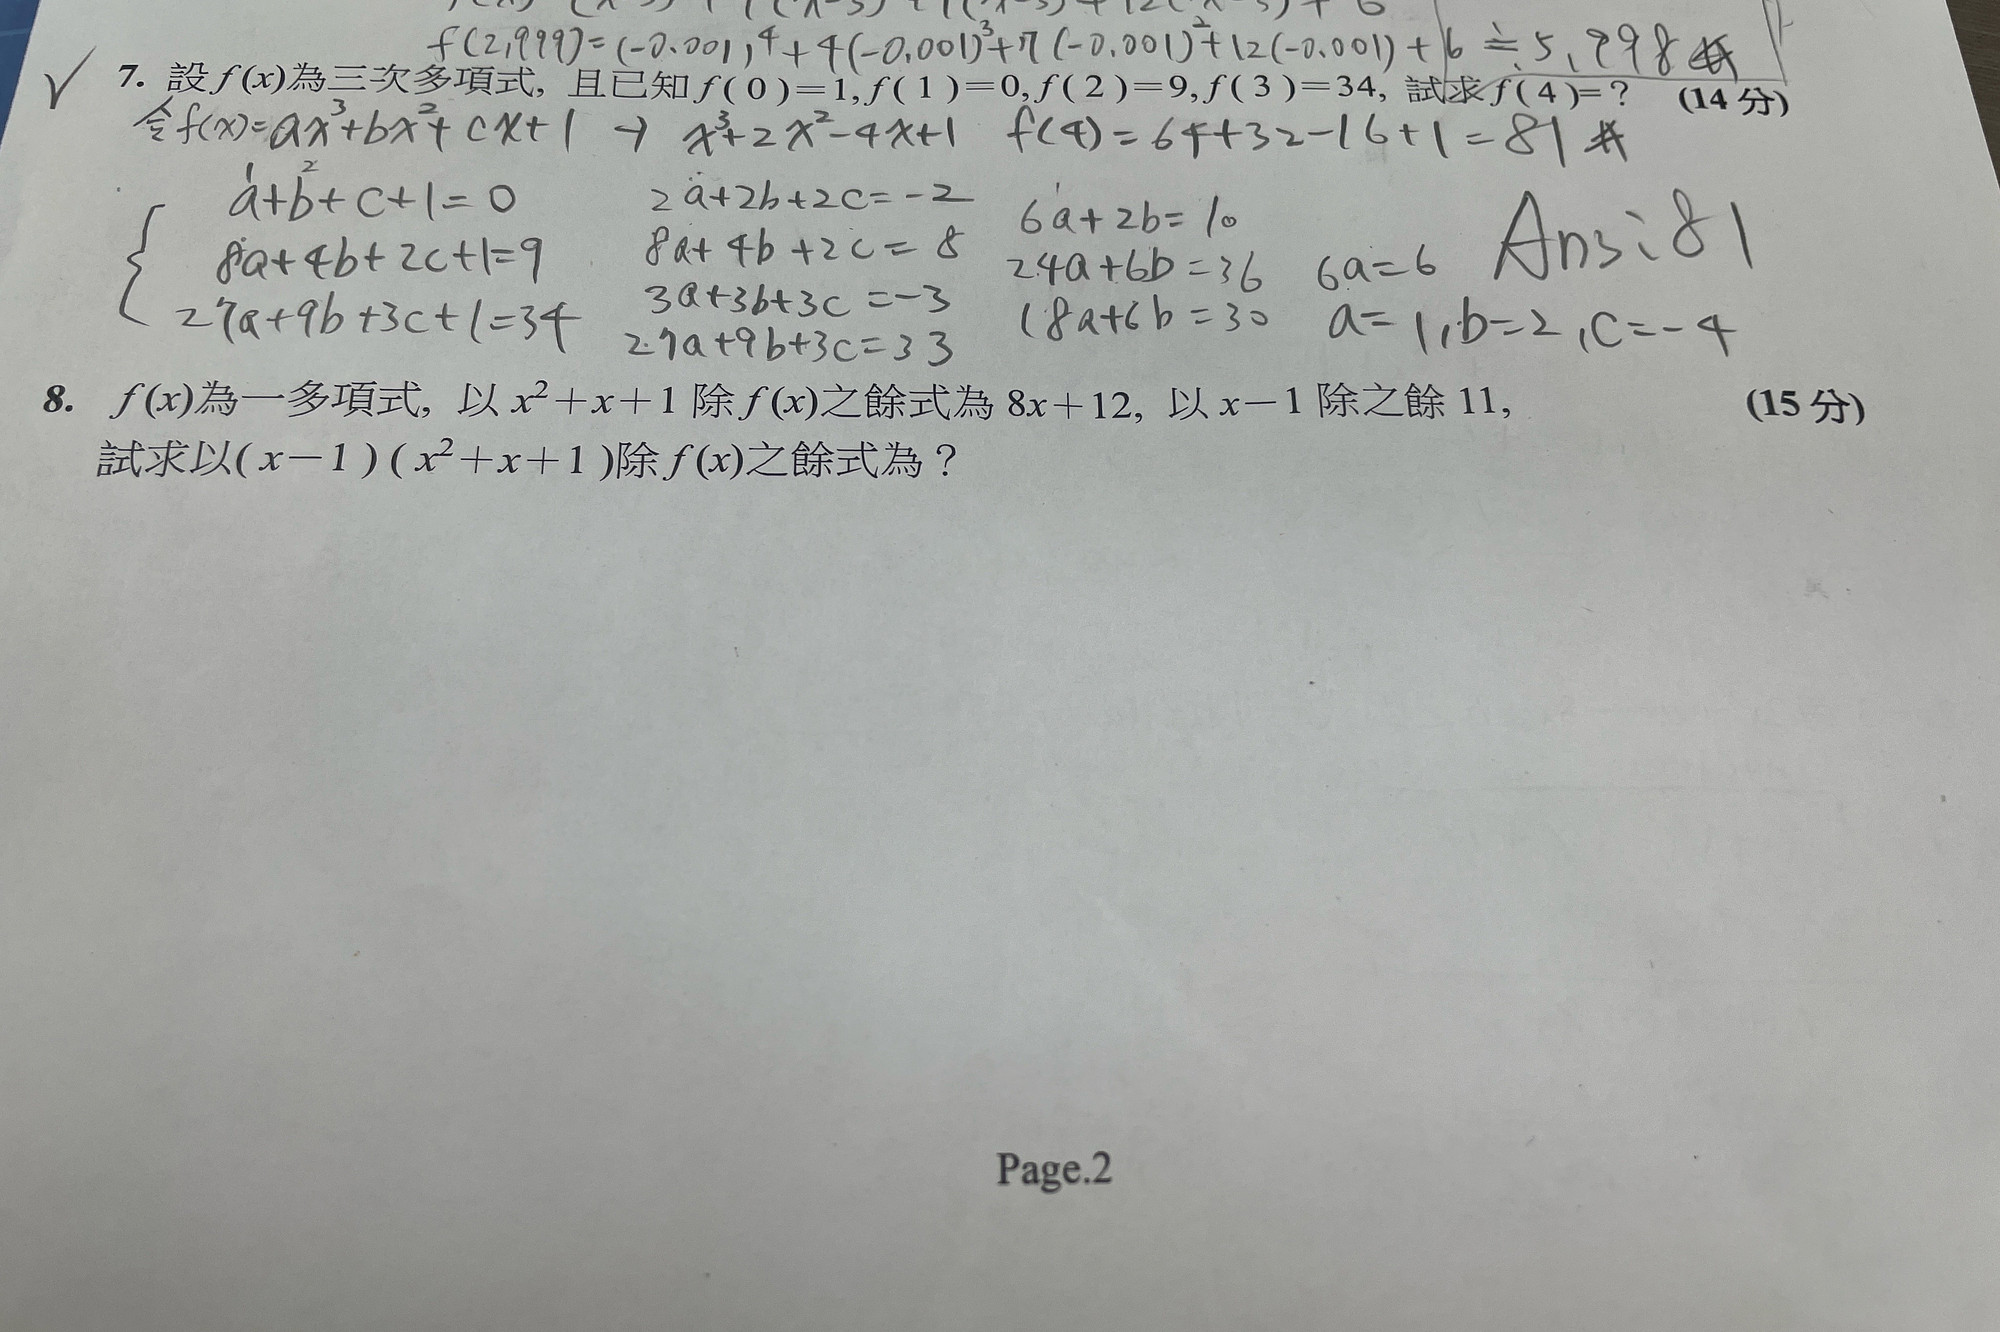 f(2,999)=(-0.001)⁴+4(-0.001)³+7(-0.001)²+12(-0.001)+6≒5,998#
7. 設f(x)為三次多項式, 且已知f(0)=1,f(1)=0,f(2)=9,f(3)=34, 試求f(4)=? (14分)
令f(x)=ax³+bx²+cx+1 → x³+2x²-4x+1 f(4)=64+32-16+1=81#
a+b+c+1=0 2a+2b+2c=-2 6a+2b=10 Ans:81
8a+4b+2c+1=9 8a+4b+2c=8 24a+6b=36 6a=6
27a+9b+3c+1=34 3a+3b+3c=-3 18a+6b=30 a=1,b=2,c=-4
27a+9b+3c=33
8. f(x)為一多項式, 以x²+x+1除f(x)之餘式為8x+12, 以x-1除之餘11, (15分)
試求以(x-1)(x²+x+1)除f(x)之餘式為?
Page.2